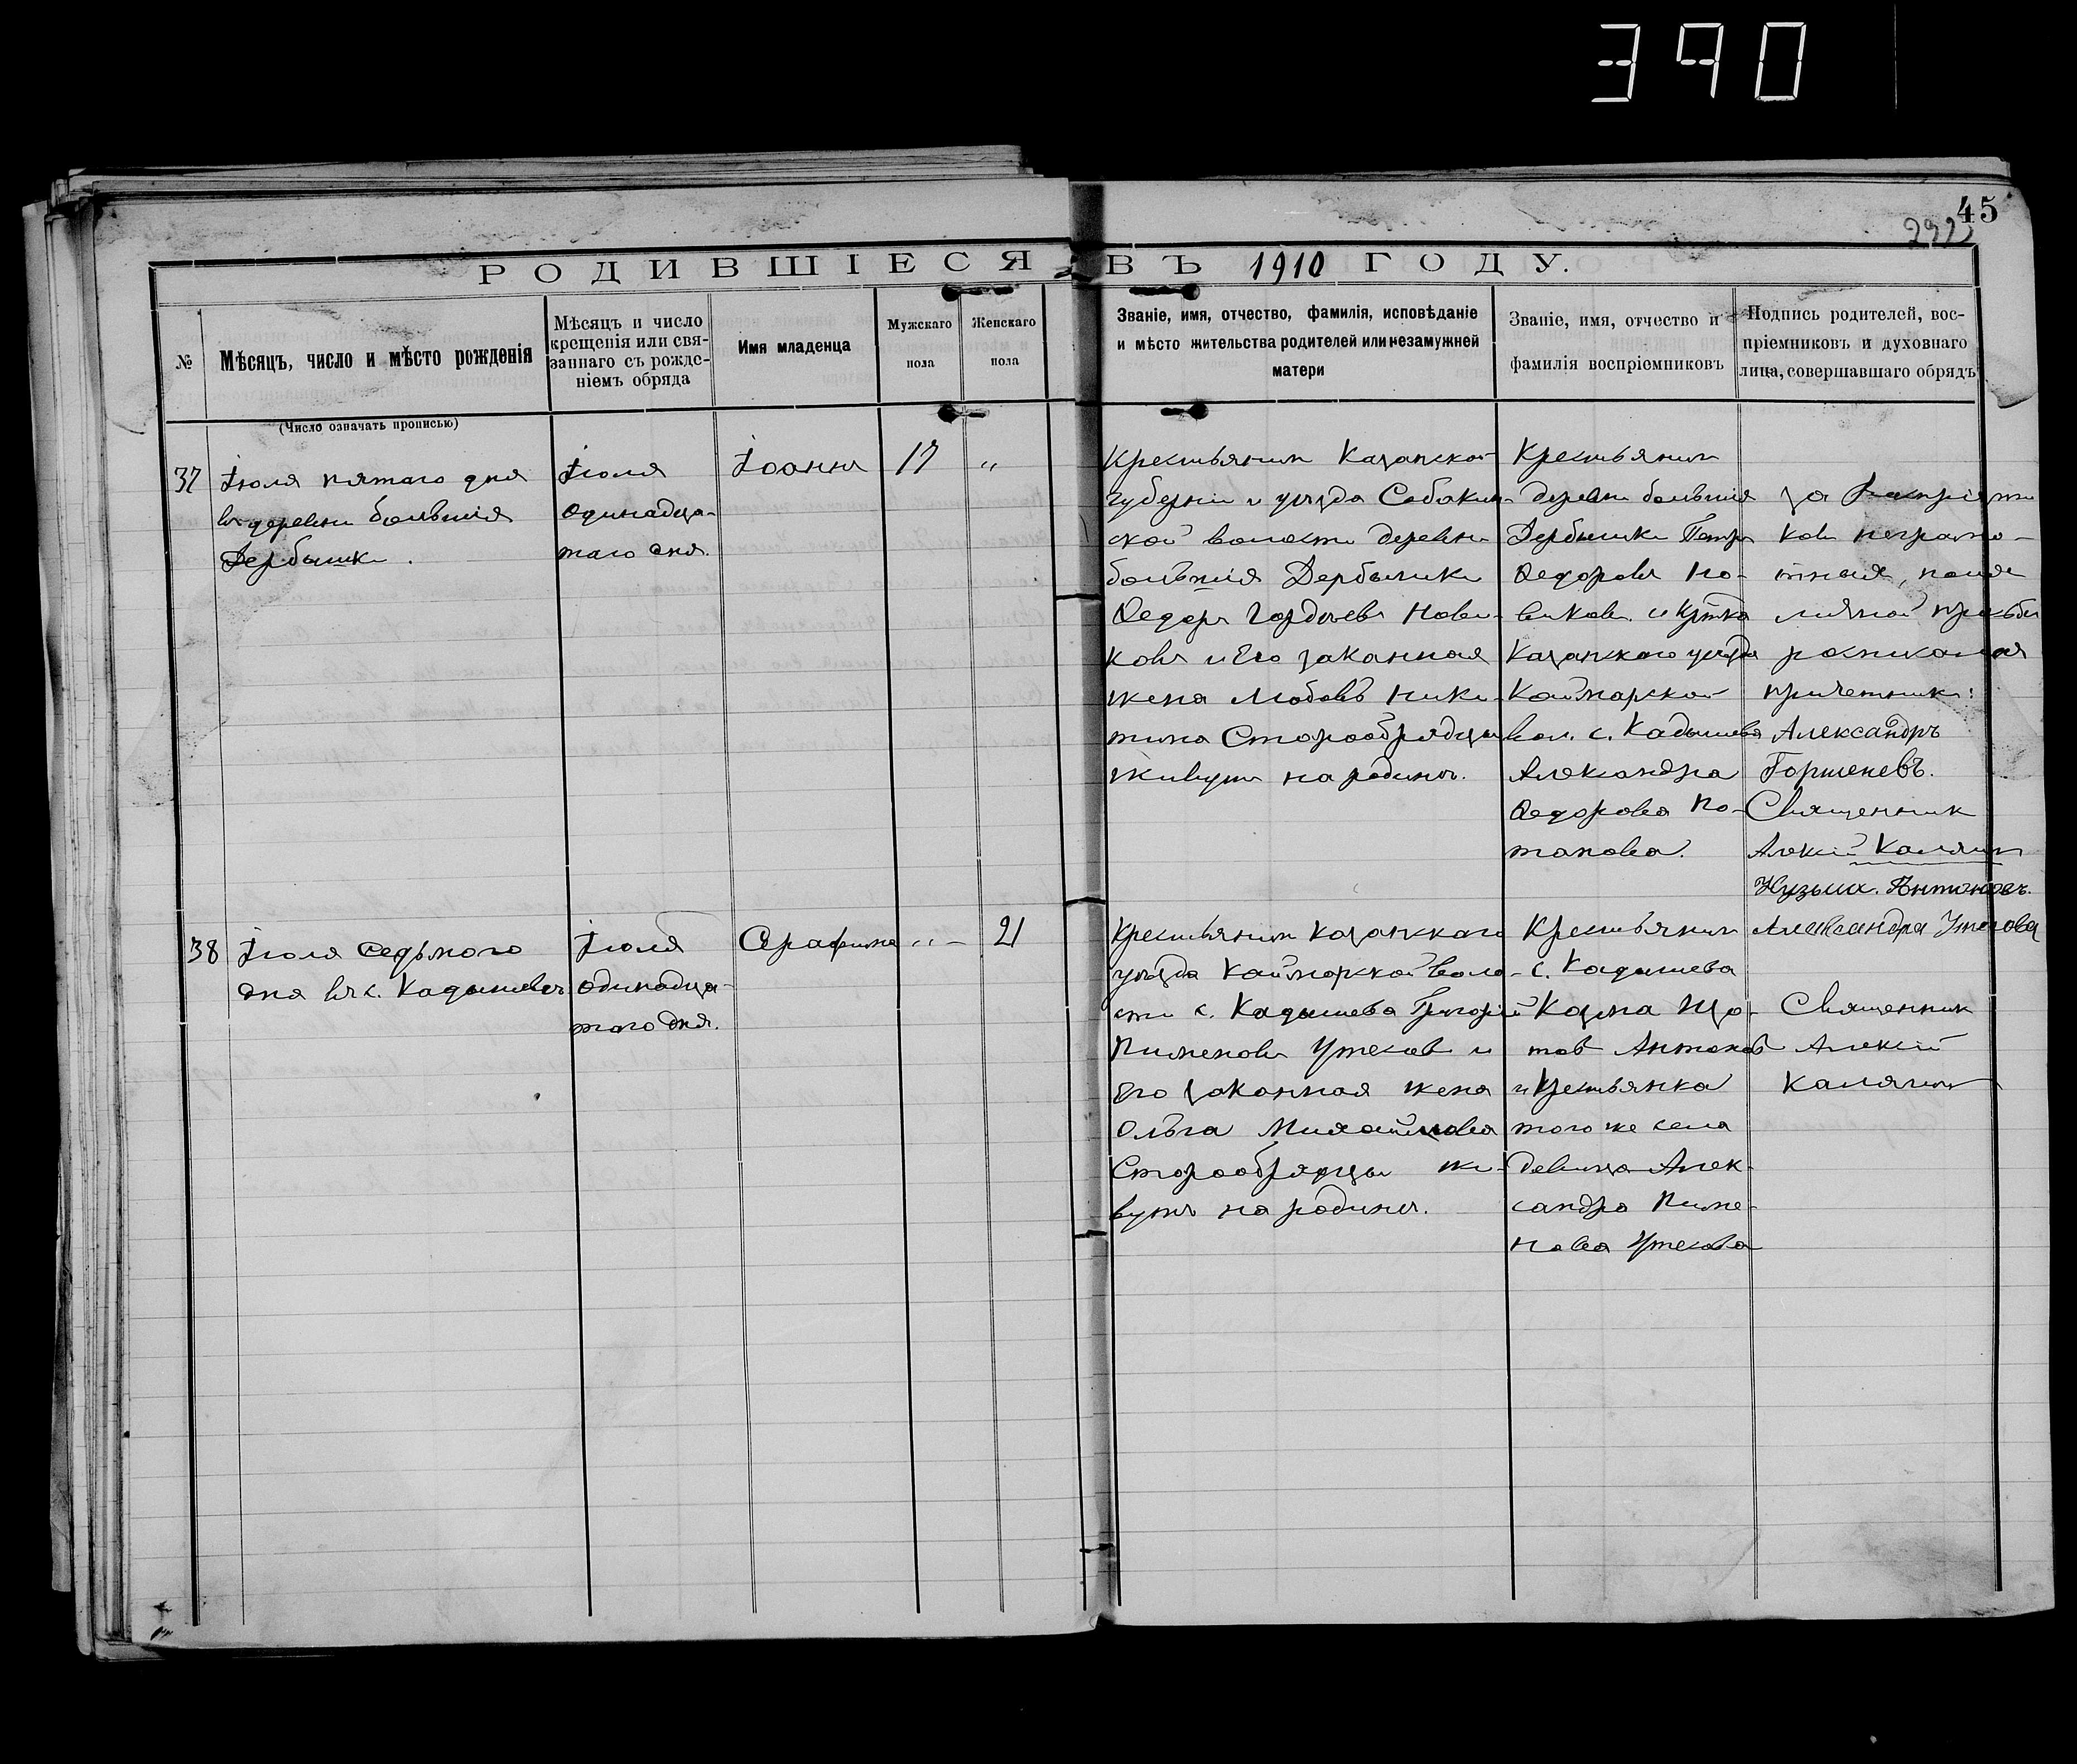 390
45
РОДИВШІЕСЯ ВЪ 1910 ГОДУ.
№
Мѣсяцъ, число и мѣсто рожденія
Мѣсяцъ и число
крещенія или свя-
заннаго съ рожде-
ніемъ обряда
Имя младенца
Мужскаго
пола
Женскаго
пола
Званіе, имя, отчество, фамилія, исповѣданіе
и мѣсто жительства родителей или незамужней
матери
Званіе, имя, отчество и
фамилія воспріемниковъ
Подпись родителей, вос-
пріемниковъ и духовнаго
лица, совершавшаго обрядъ
(Число означать прописью)
37
Іюля пятаго дня
въ деревни большія
Дербышки.
Іюля
одинадца-
таго дня.
Іоаннъ
17
"
Крестьянин Казанской
губерніи и уѣзда Собакин-
ской волости деревни
большія Дербышки
Ѳедоръ Гордѣевъ Нови-
ковъ и Его законная
жена Любовь Ники-
тина Старообрядцы
живутъ на родинѣ.
Крестьянин
деревни большія
Дербышки Петръ
Ѳедоровъ Но-
виковъ и Кр-тка
Казанскаго уѣзда
Каймарской
вол. с. Кадышева
Александра
Ѳедорова По-
тапова.
за
ков неграмо-
тныя, по их
личной просьби
росписался
причетник:
Александръ
Горшеневъ.
Священник
Алексій Калягин
Кузьма. Антоновъ.
38
Іюля седьмого
дня въ с. Кадышевѣ
Іюля
одинадца-
таго дня.
Серафима
" -
21
Крестьянин Казанскаго
уѣзда Каймарской воло-
сти с. Кадышева Григорій
Пименовъ Утесов и
Его законная жена
Ольга Михайлова
Старообрядцы жи-
вутъ на родинѣ.
Крестьянин
с. Кадышева
Козма Изо-
тов Антонов
и Крестьянка
того же села
девица Алек-
сандра Пиме-
нова Утесова
Александра Утесова
Священник
Алексій
Калягин